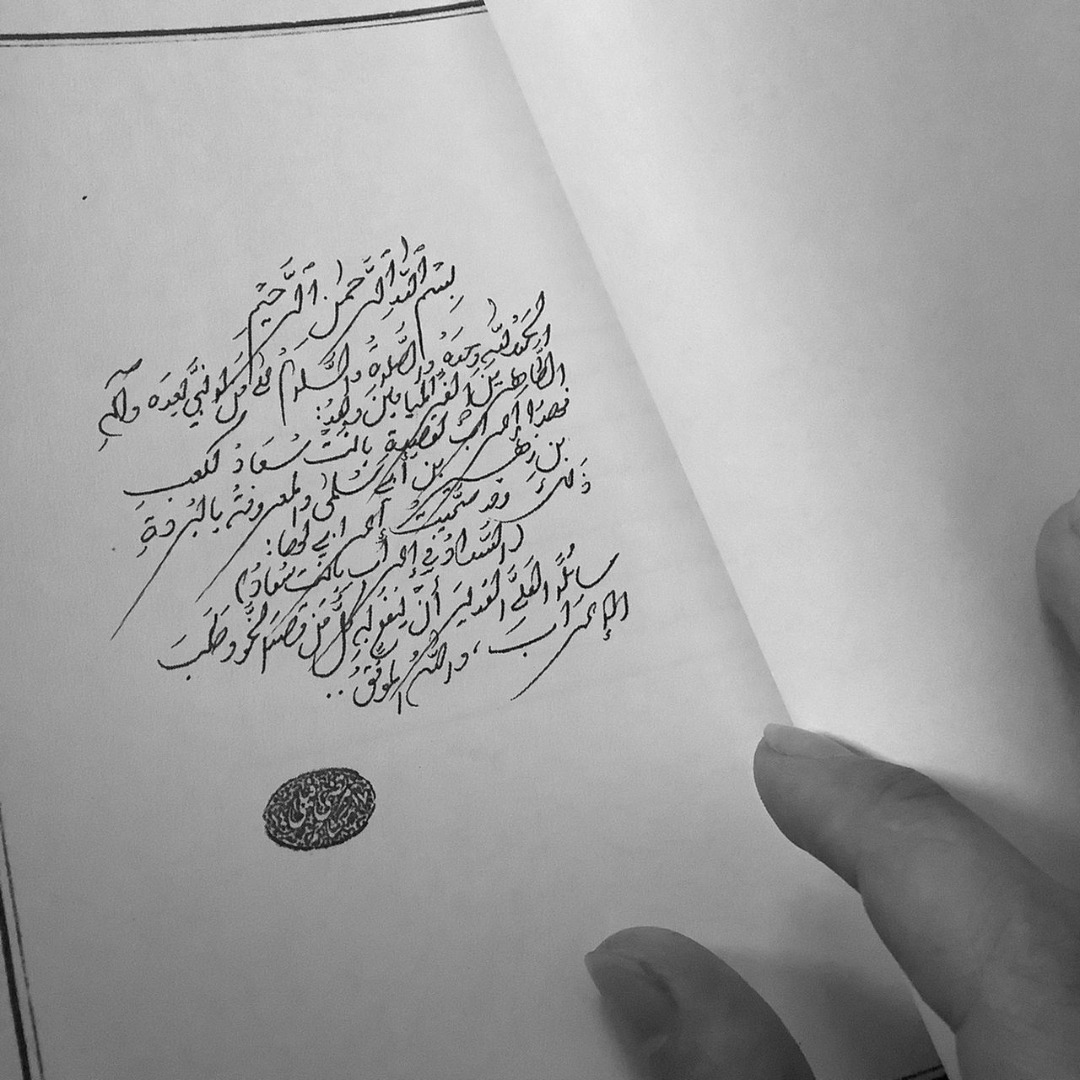 بِسْمِ اللَّهِ الرَّحْمٰنِ الرَّحِيْمِ
الحَمْدُ للهِ وحدَهُ والصَّلاةُ والسَّلامُ على مَن لا نبيَّ بَعدَه وآلهِ
الطَّاهرين الغُرِّ الميامين وبعدُ:
فهذا إعرابٌ لقصيدة بانَتْ سُعَادُ لكعبِ
بن زهير بن أبي سُلمى والمعروفةُ بالبُردةِ
وقد سمَّيتُ إعرابي لها:
ذلكَ
(السَّعادُ في إعراب بانَتْ سُعَادُ)
سائلًا العليَّ القديرَ أنْ ينفع به كلَّ مَن قصَدَ النَّحو وطَلَبَ
الإعرابَ، والله الموفّقُ..